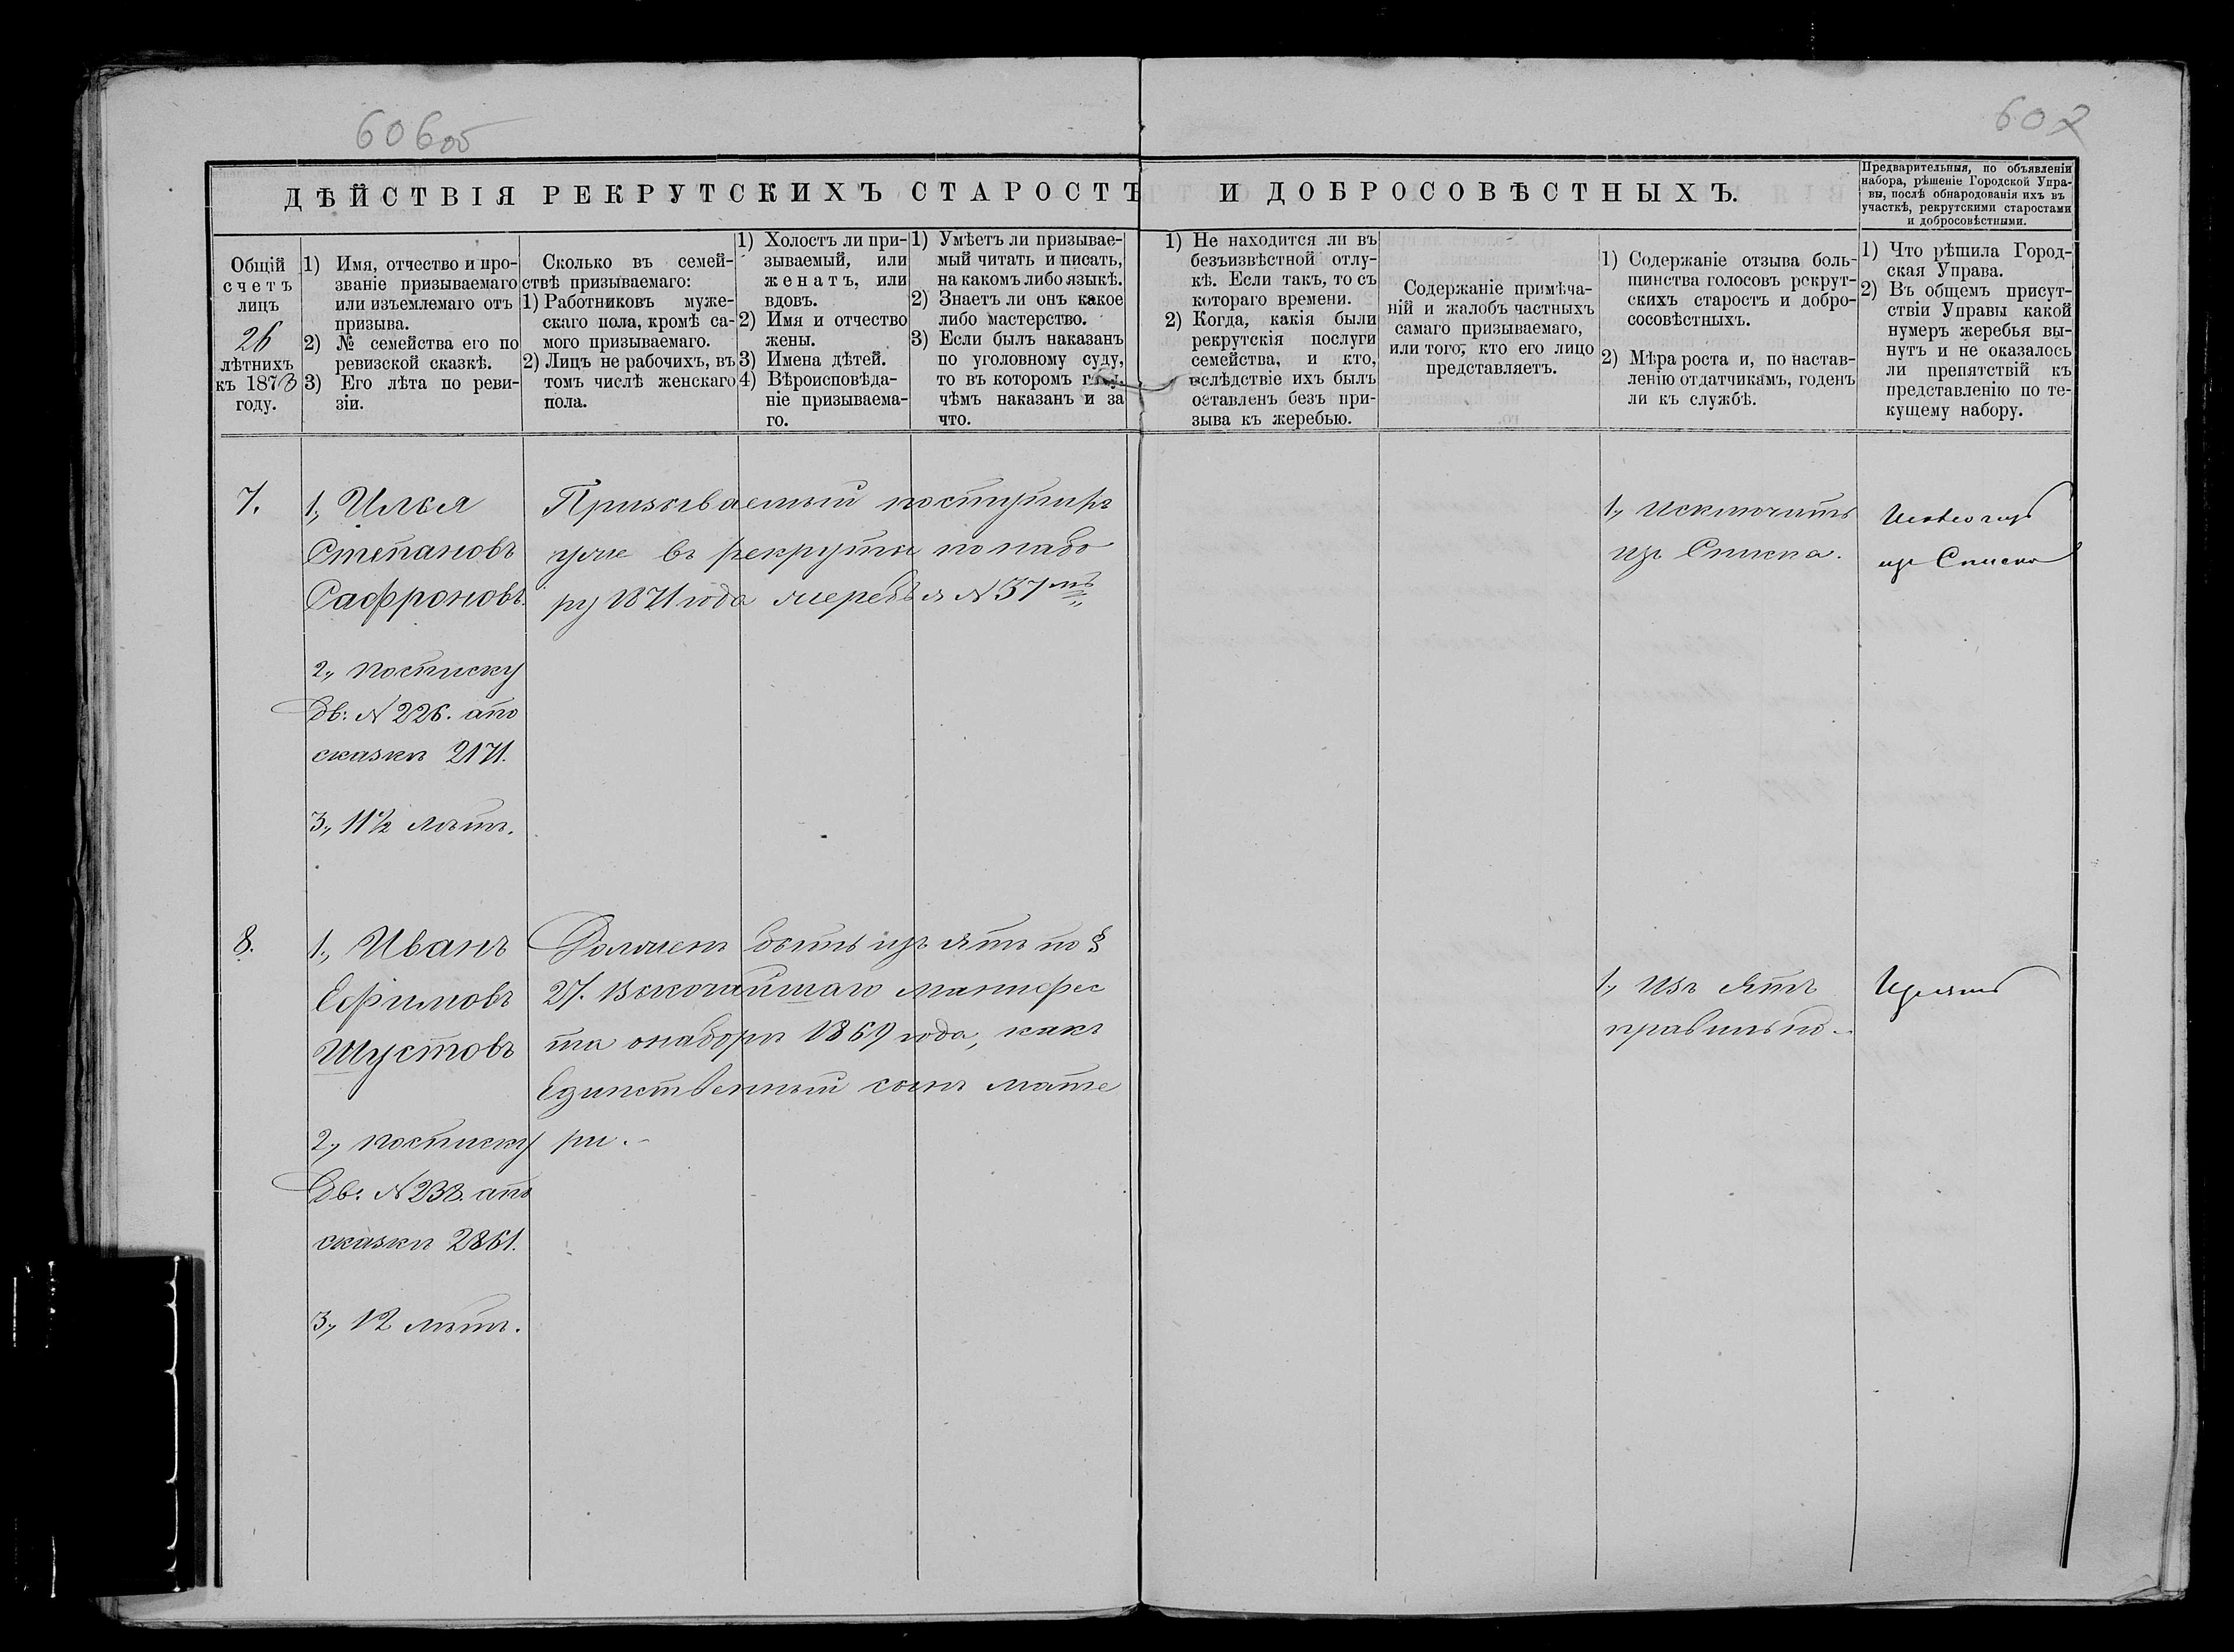 606об
607
ДѢЙСТВІЯ РЕКРУТСКИХЪ СТАРОСТЪ И ДОБРОСОВѢСТНЫХЪ.
Предварительныя, по объявленіи
набора, рѣшеніе Городской Упра-
вы, послѣ обнародованія ихъ въ
участкѣ, рекрутскими старостами
и добросовѣстными.
Общій
счетъ
лицъ
26
лѣтнихъ
къ 1873
году.
1) Имя, отчество и про-
званіе призываемаго
или изъемлемаго отъ
призыва.
2) № семейства его по
ревизской сказкѣ.
3) Его лѣта по реви-
зіи.
Сколько въ семей-
ствѣ призываемаго:
1) Работниковъ муже-
скаго пола, кромѣ са-
мого призываемаго.
2) Лицъ не рабочихъ, въ
томъ числѣ женскаго
пола.
1) Холостъ ли при-
зываемый, или
женатъ, или
вдовъ.
2) Имя и отчество
жены.
3) Имена дѣтей.
4) Вѣроисповѣда-
ніе призываема-
го.
1) Умѣетъ ли призывае-
мый читать и писать,
на какомъ либо языкѣ.
2) Знаетъ ли онъ какое
либо мастерство.
3) Если былъ наказанъ
по уголовному суду,
то въ которомъ году,
чѣмъ наказанъ и за
что.
1) Не находится ли въ
безъизвѣстной отлу-
кѣ. Если такъ, то съ
котораго времени.
2) Когда, какія были
рекрутскія послуги
семейства, и кто,
вслѣдствіе ихъ былъ
оставленъ безъ при-
зыва къ жеребью.
Содержаніе примѣча-
ній и жалобъ частныхъ
самаго призываемаго,
или того, кто его лицо
представляетъ.
1) Содержаніе отзыва боль-
шинства голосовъ рекрут-
скихъ старостъ и добро-
сосовѣстныхъ.
2) Мѣра роста и, по настав-
ленію отдатчикамъ, годенъ
ли къ службѣ.
1) Что рѣшила Город-
ская Управа.
2) Въ общемъ присут-
ствіи Управы какой
нумеръ жеребья вы-
нутъ и не оказалось
ли препятствій къ
представленію по те-
кущему набору.
7.
1., Илья
Степановъ
Сафроновъ.
2., по списку
Дв: № 226. а по
сказкѣ 2171.
3., 11½ лѣтъ.
Призываемый поступилъ
уже въ рекруты по набо
ру 1871 года жеребья № 37мъ
1., Исключить
изъ Списка.
изъ Списка
8.
1., Иванъ
Ефимовъ
Шустовъ
2., по списку
Дв: № 238. а по
сказкѣ 2861.
3., 12 лѣтъ.
Долженъ быть изъ ятъ по §
27. Высочайшаго манифес
та о наборѣ 1869 года, какъ
Единственный сынъ мате
ри.
1., Изъ Ятъ
правильно.
Изъять